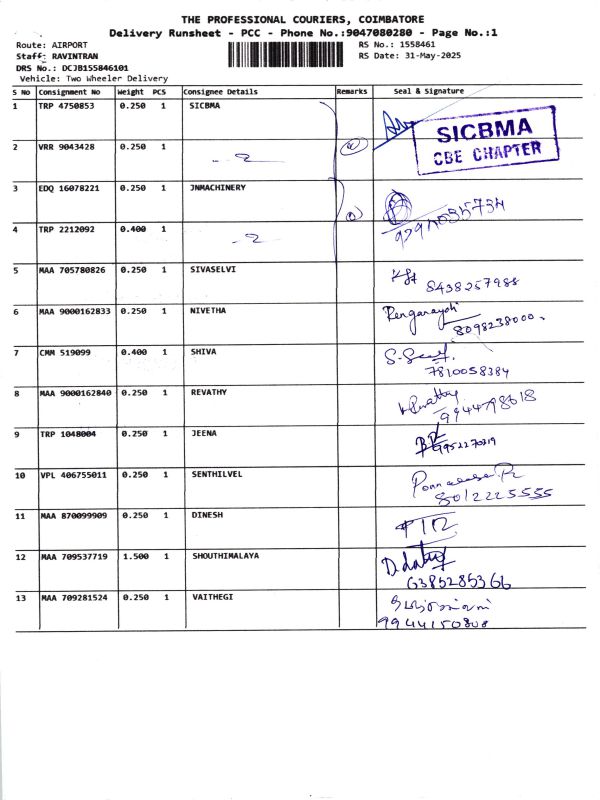 THE PROFESSIONAL COURIERS, COIMBATORE
Delivery Runsheet - PCC - Phone No.:9047080280 - Page No.:1
Route: AIRPORT RS No.: 1558461
Staff: RAVINTRAN RS Date: 31-May-2025
DRS No.: DCJB155846101
Vehicle: Two Wheeler Delivery
S No Consignment No Weight PCS Consignee Details Remarks Seal & Signature
1 TRP 4750853 0.250 1 SICBMA
SICBMA
CBE CHAPTER
2 VRR 9043428 0.250 1
3 EDQ 16078221 0.250 1 JNMACHINERY
4 TRP 2212092 0.400 1
5 MAA 705780826 0.250 1 SIVASELVI
8438257988
6 MAA 9000162833 0.250 1 NIVETHA
8098238000.
7 CMM 519099 0.400 1 SHIVA
7810058384
8 MAA 9000162840 0.250 1 REVATHY
9944798618
9 TRP 1048004 0.250 1 JEENA
10 VPL 406755011 0.250 1 SENTHILVEL
8012225555
11 MAA 870099909 0.250 1 DINESH
12 MAA 709537719 1.500 1 SHOUTHIMALAYA
6385285366
13 MAA 709281524 0.250 1 VAITHEGI
9944150808